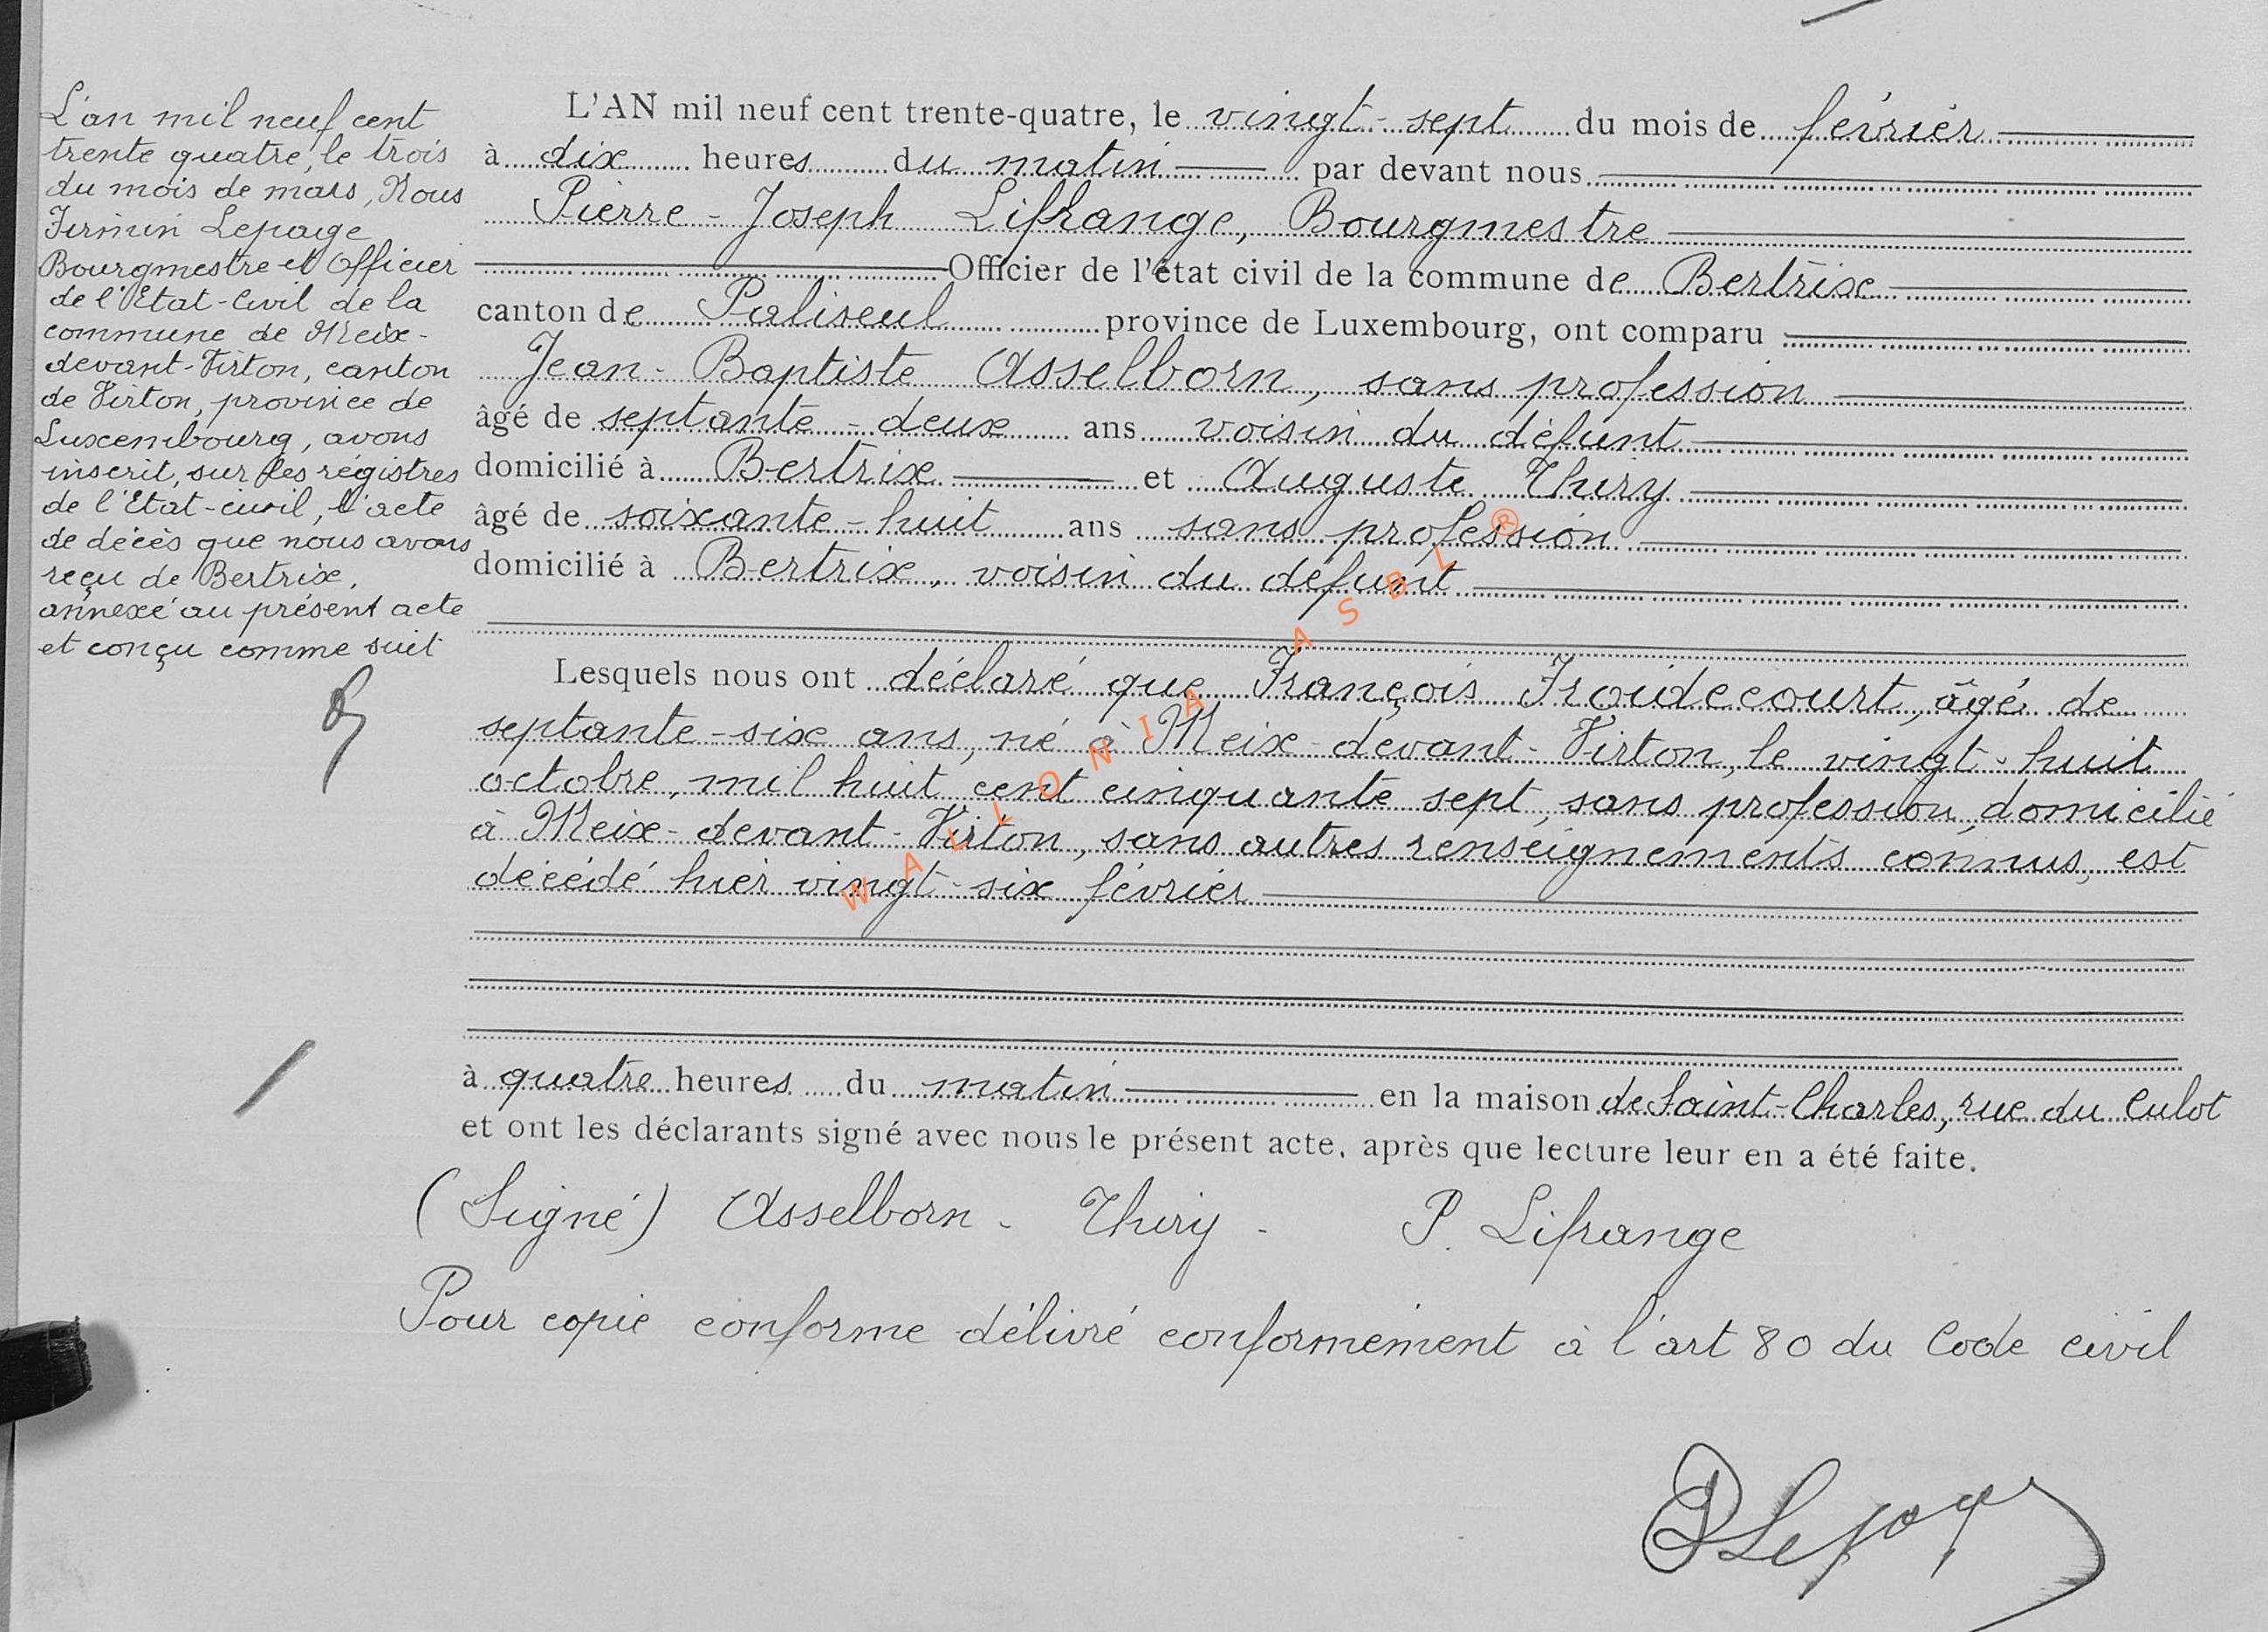 L'an mil neuf cent
trente quatre, le trois
du mois de mars, Nous
Firmin Lepage
Bourgmestre et Officier
de l'Etat-Civil de la
commune de Meix-
devant-Virton, canton
de Virton, province de
Luxembourg, avons
inscrit, sur les régistres
de l'Etat-civil, l'acte
de décès que nous avons
reçu de Bertrix,
annexé au présent acte
et conçu comme suit
L'AN mil neuf cent trente-quatre, le vingt-sept du mois de février
à dix heures du matin par devant nous
Pierre-Joseph Lifrange, Bourgmestre
Officier de l'état civil de la commune de Bertrix
canton de Paliseul province de Luxembourg, ont comparu
Jean-Baptiste Asselborn, sans profession
âgé de septante-deux ans voisin du défunt
domicilié à Bertrix et Auguste Thiry
âgé de soixante-huit ans sans profession
domicilié à Bertrix, voisin du défunt
Lesquels nous ont déclaré que François Froidecourt, âgé de
septante-six ans, né à Meix-devant-Virton, le vingt-huit
octobre, mil huit cent cinquante sept, sans profession, domicilié
à Meix-devant-Virton, sans autres renseignements connus, est
décédé hier vingt-six février
à quatre heures du matin en la maison de Saint-Charles, rue du Culot
et ont les déclarants signé avec nous le présent acte, après que lecture leur en a été faite.
(Signé) Asselborn - Thiry - P. Lifrange
Pour copie conforme délivré conformément à l'art 80 du Code civil
Lepage
WALLONIA ASBL ®